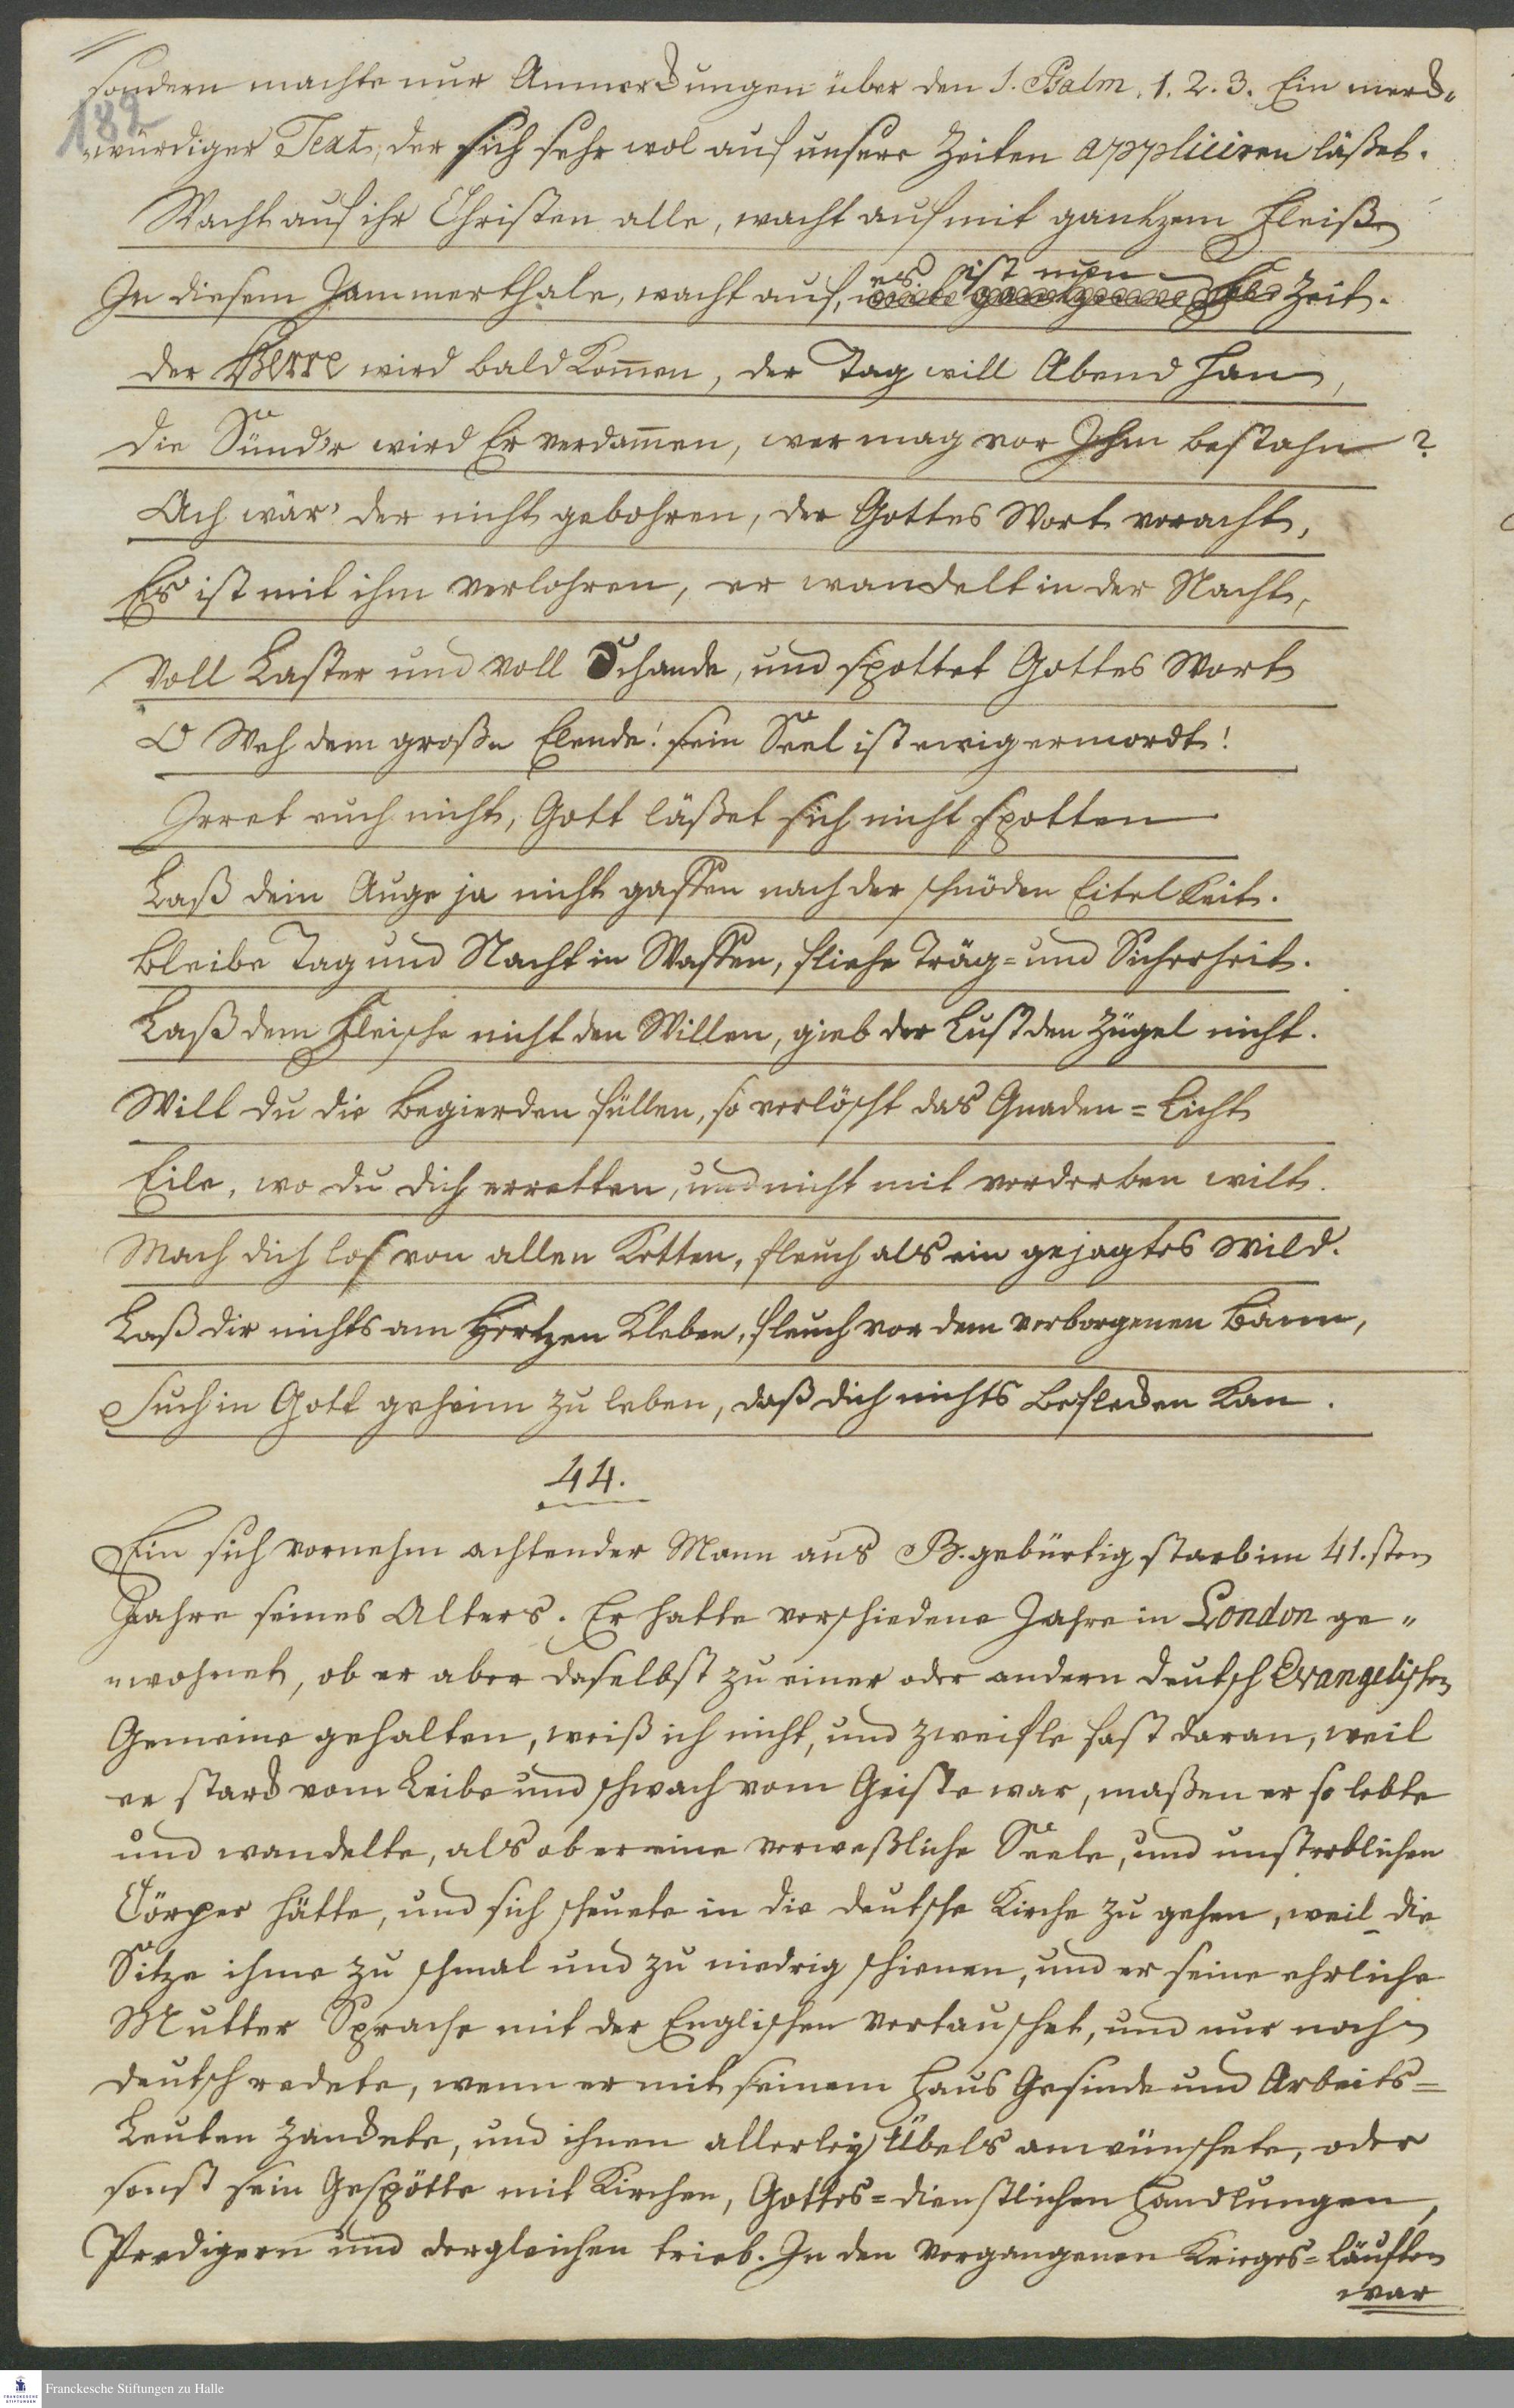 sondern machte nur Anmerckungen über den 1. Psalm. 1. 2. 3. Ein merck-
182
-würdiger Text, der sich sehr wol auf unsere Zeiten appliciren läßet.
Wacht auf ihr Christen alle, wacht auf mit gantzem Fleiße
es ist nun
In diesem Jammerthale, wacht auf, mit gantzem Zeit.
der HErre wird bald kom̄en, der Tag will Abend han,
die Sünd'r wird Er verdam̄en, wer mag vor Ihm bestahn?
Ach wär' der nicht gebohren, der Gottes Wort veracht,
Es ist mit ihm verlohren, er wandelt in der Nacht,
Voll Laster und voll Schande, und spottet Gottes Wort
O Weh dem große Elende! sein Seel ist ewig ermordt!
Irret euch nicht, Gott läßet sich nicht spotten
Laß dein Auge ja nicht gaffen nach der schnöden Eitelkeit.
Bleibe Tag und Nacht in Waffen, fliehe Träg= und Sicherheit.
Laß dem Fleische nicht den Willen, gieb der Lust den Zügel nicht.
Wilt du die Begierden füllen, so verlöscht das Gnaden=Licht
Eile, wo du dich erretten, und nicht mit verderben wilt.
Mach dich los von allen Ketten, fleuch als ein gejagtes Wild.
Laß dir nichts am Hertzen kleben, fleuch vor dem verborgenen Bann,
Such in Gott geheim zu leben, daß dich nichts beflecken kan.
44.
Ein sich vornehm achtender Mann aus B. gebürtig starb im 41.sten
Jahre seines Alters. Er hatte verschiedene Jahre in London ge-
-wohnet, ob er aber daselbst zu einer oder andern deutsch Evangelischen
Gemeine gehalten, weiß ich nicht, und zweifle fast daran, weil
er starck vom Leibe und schwach vom Geiste war, maßen er so lebte
und wandelte, als ob er eine verweßliche Seele, und unsterblichen
Cörper hätte, und sich scheuete in die deutsche Kirche zu gehen, weil die
Sitze ihme zu schmal und zu niedrig schienen, und er seine ehrliche
Mutter Sprache mit der Englischen vertauschet, und nur noch
deutsch redete, wenn er mit seinem Haus Gesinde und Arbeits=
Leuten zanckete, und ihnen allerley Übels anwünschete, oder
sonst sein Gespötte mit Kirchen, Gottes=dienstlichen Handlungen,
Predigern und dergleichen trieb. In den vergangenen Krieges=Läufften
war
Franckesche Stiftungen zu Halle